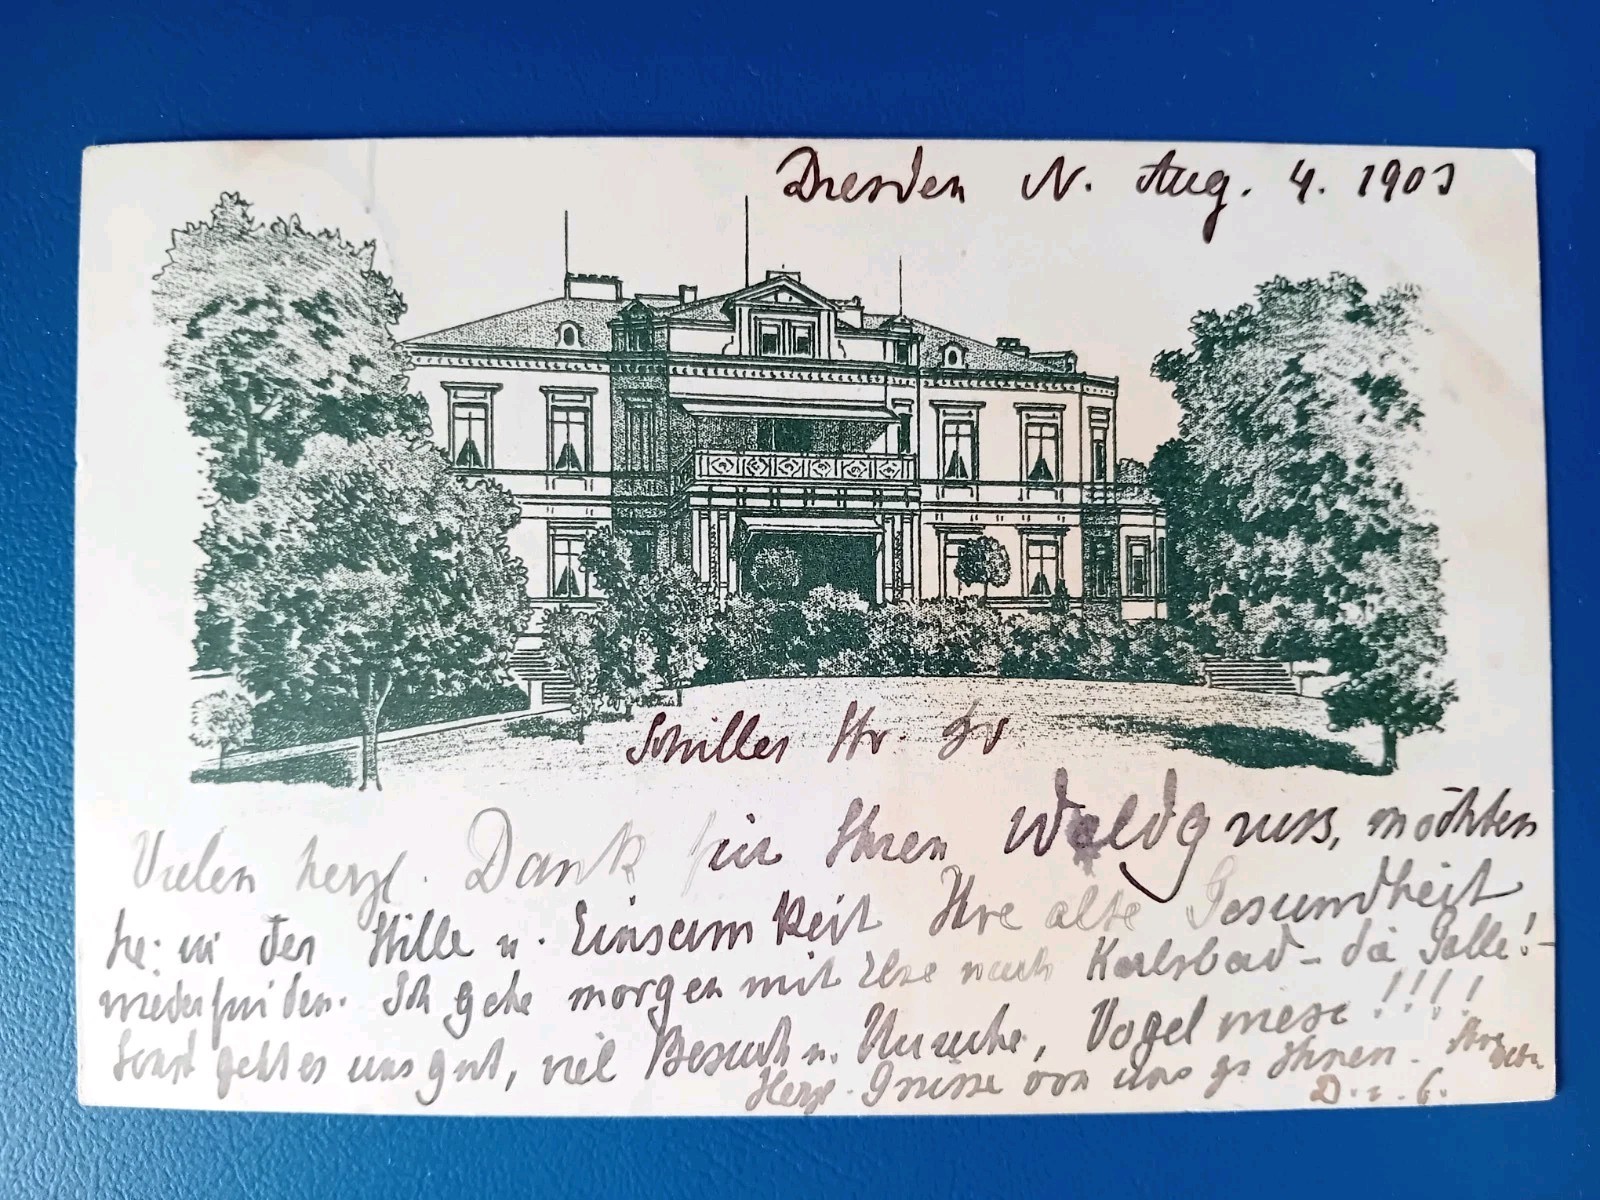 Dresden N. Aug. 4. 1903
Schiller Str.
Vielen herzl. Dank für Ihren Waldgruss, möchten
Sie in der Stille u. Einsamkeit Ihre alte Gesundheit
wiederfinden. Ich gehe morgen mit Ilse nach Karlsbad – die Galle! –
Sonst geht es uns gut, viel Besuch u. Unruhe, Vogelwiese!!!!
Herzl. Grüsse von uns zu Ihnen. Ihre
D. v. G.